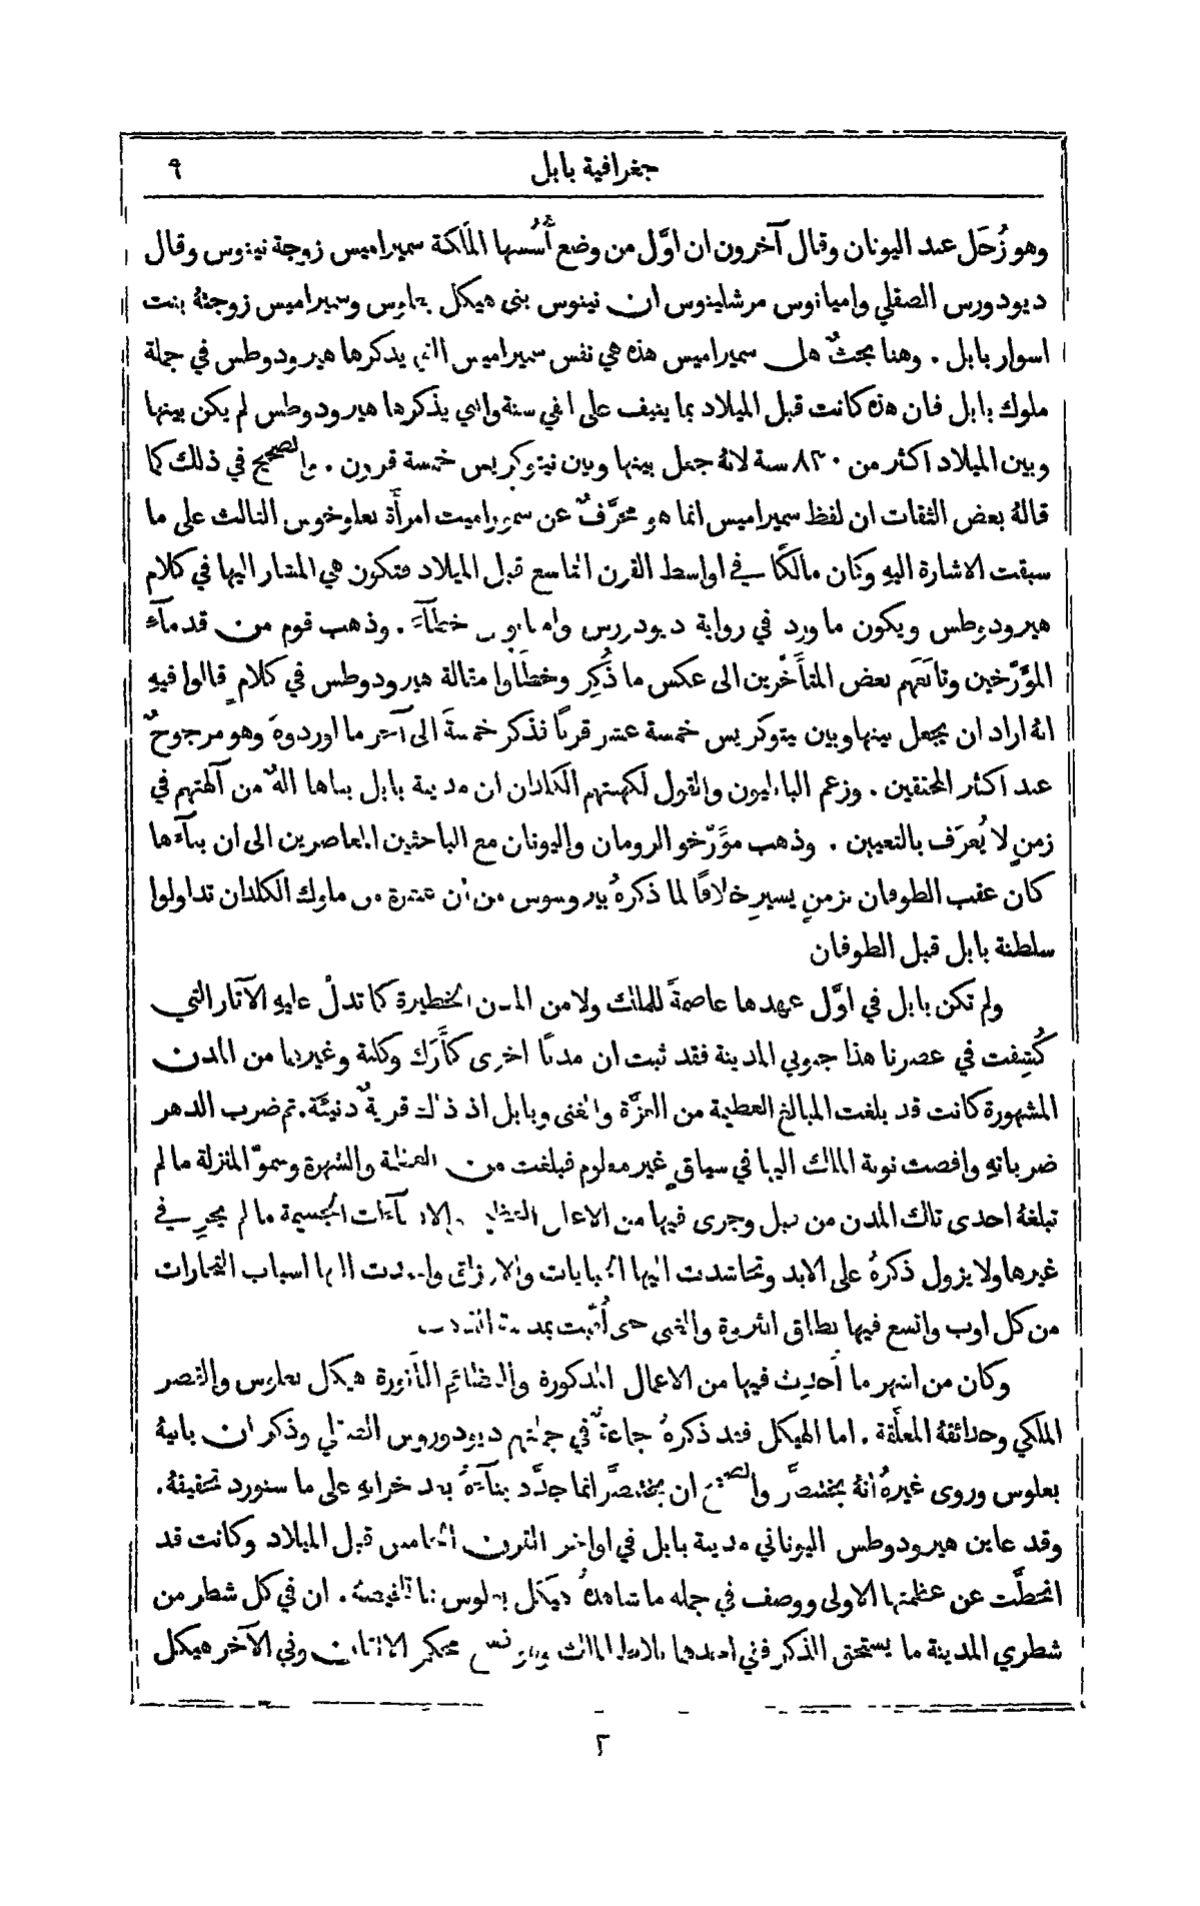 جغرافية بابل ٩
وهو زُحَل عند اليونان وقال آخرون ان اوَّل من وضع أُسُسها الملكة سميراميس زوجة نينوس وقال
ديودورس الصقلي واميانوس مرشلينوس ان نينوس بنى هيكل بعلوس وسميراميس زوجتهُ بنت
اسوار بابل . وهنا بحثٌ هل سميراميس هذه هي نفس سميراميس التي يذكرها هيرودوطس في جملة
ملوك بابل فان هذه كانت قبل الميلاد بما ينيف على الفي سنة والتي يذكرها هيرودوطس لم يكن بينها
وبين الميلاد اكثر من ٨٢٠ سنة لانهُ جعل بينها وبين نيتوكريس خمسة قرون . والصحيح في ذلك كما
قالهُ بعض الثقات ان لفظ سميراميس انما هو محرَّفٌ عن سموراميت امرأة بعلوخوس الثالث على ما
سبقت الاشارة اليهِ وكان مالكًا في اواسط القرن التاسع قبل الميلاد فتكون هي المشار اليها في كلام
هيرودوطس ويكون ما ورد في رواية ديودورس واميانوس خطآءً . وذهب قوم من قدمآء
المؤَرّخين وتابعهم بعض المتأَخّرين الى عكس ما ذُكِر وخطَّأوا مقالة هيرودوطس في كلامٍ قالوا فيهِ
انهُ اراد ان يجعل بينها وبين نيتوكريس خمسة عشر قرنًا فذكر خمسةً الى آخر ما اوردوهُ وهو مرجوحٌ
عند اكثر المحققين . وزعم البابليون والقول لكهنتهم الكلدان ان مدينة بابل بناها الهٌ من آلهتهم في
زمنٍ لا يُعرَف بالتعيين . وذهب مؤَرّخو الرومان واليونان مع الباحثين المعاصرين الى ان بنآءها
كان عقب الطوفان بزمنٍ يسيرٍ خلافًا لما ذكرهُ بيروسوس من ان عشرة من ملوك الكلدان تداولوا
سلطنة بابل قبل الطوفان
ولم تكن بابل في اوَّل عهدها عاصمةً للملك ولا من المدن الخطيرة كما تدلّ عليهِ الآثار التي
كُشِفت في عصرنا هذا جنوبي المدينة فقد ثبت ان مدنًا اخرى كأَرَك وكلنة وغيرها من المدن
المشهورة كانت قد بلغت المبالغ العظيمة من العزَّة والغنى وبابل اذ ذاك قريةٌ دنيئة . ثم ضرب الدهر
ضرباتهِ وافضت نوبة الملك اليها في سياقٍ غير معلوم فبلغت من العظمة والشهرة وسموّ المنزلة ما لم
تبلغهُ احدى تلك المدن من قبل وجرى فيها من الاعمال العظيمة والانشآءات الجسيمة ما لم يجرِ في
غيرها ولا يزول ذكرهُ على الابد وتحاشدت اليها الجبايات والارزاق وامتدت اليها اسباب التجارات
من كل اوب واتسع فيها نطاق الثروة والغنى حتى لُقّبت بمدينة الذهب
وكان من اشهر ما أُحدِث فيها من الاعمال المذكورة والعظائم المأثورة هيكل بعلوس والقصر
الملكي وحدائقهُ المعلَّقة . اما الهيكل فقد ذكرهُ جماعةٌ في جملتهم ديودوروس الصقلي وذكر ان بانيهُ
بعلوس وروى غيرهُ انهُ بختنصَّر والصحيح ان بختنصَّر انما جدَّد بنآءهُ بعد خرابهِ على ما سنورد تحقيقهُ .
وقد عاين هيرودوطس اليوناني مدينة بابل في اواخر القرن الخامس قبل الميلاد وكانت قد
انحطَّت عن عظمتها الاولى ووصف في جملة ما شاهدهُ هيكل بعلوس بما تلخيصهُ . ان في كل شطر من
شطري المدينة ما يستحق الذكر ففي احدهما بلاط الملك وهو محكم الاتقان وفي الآخر هيكل
٢